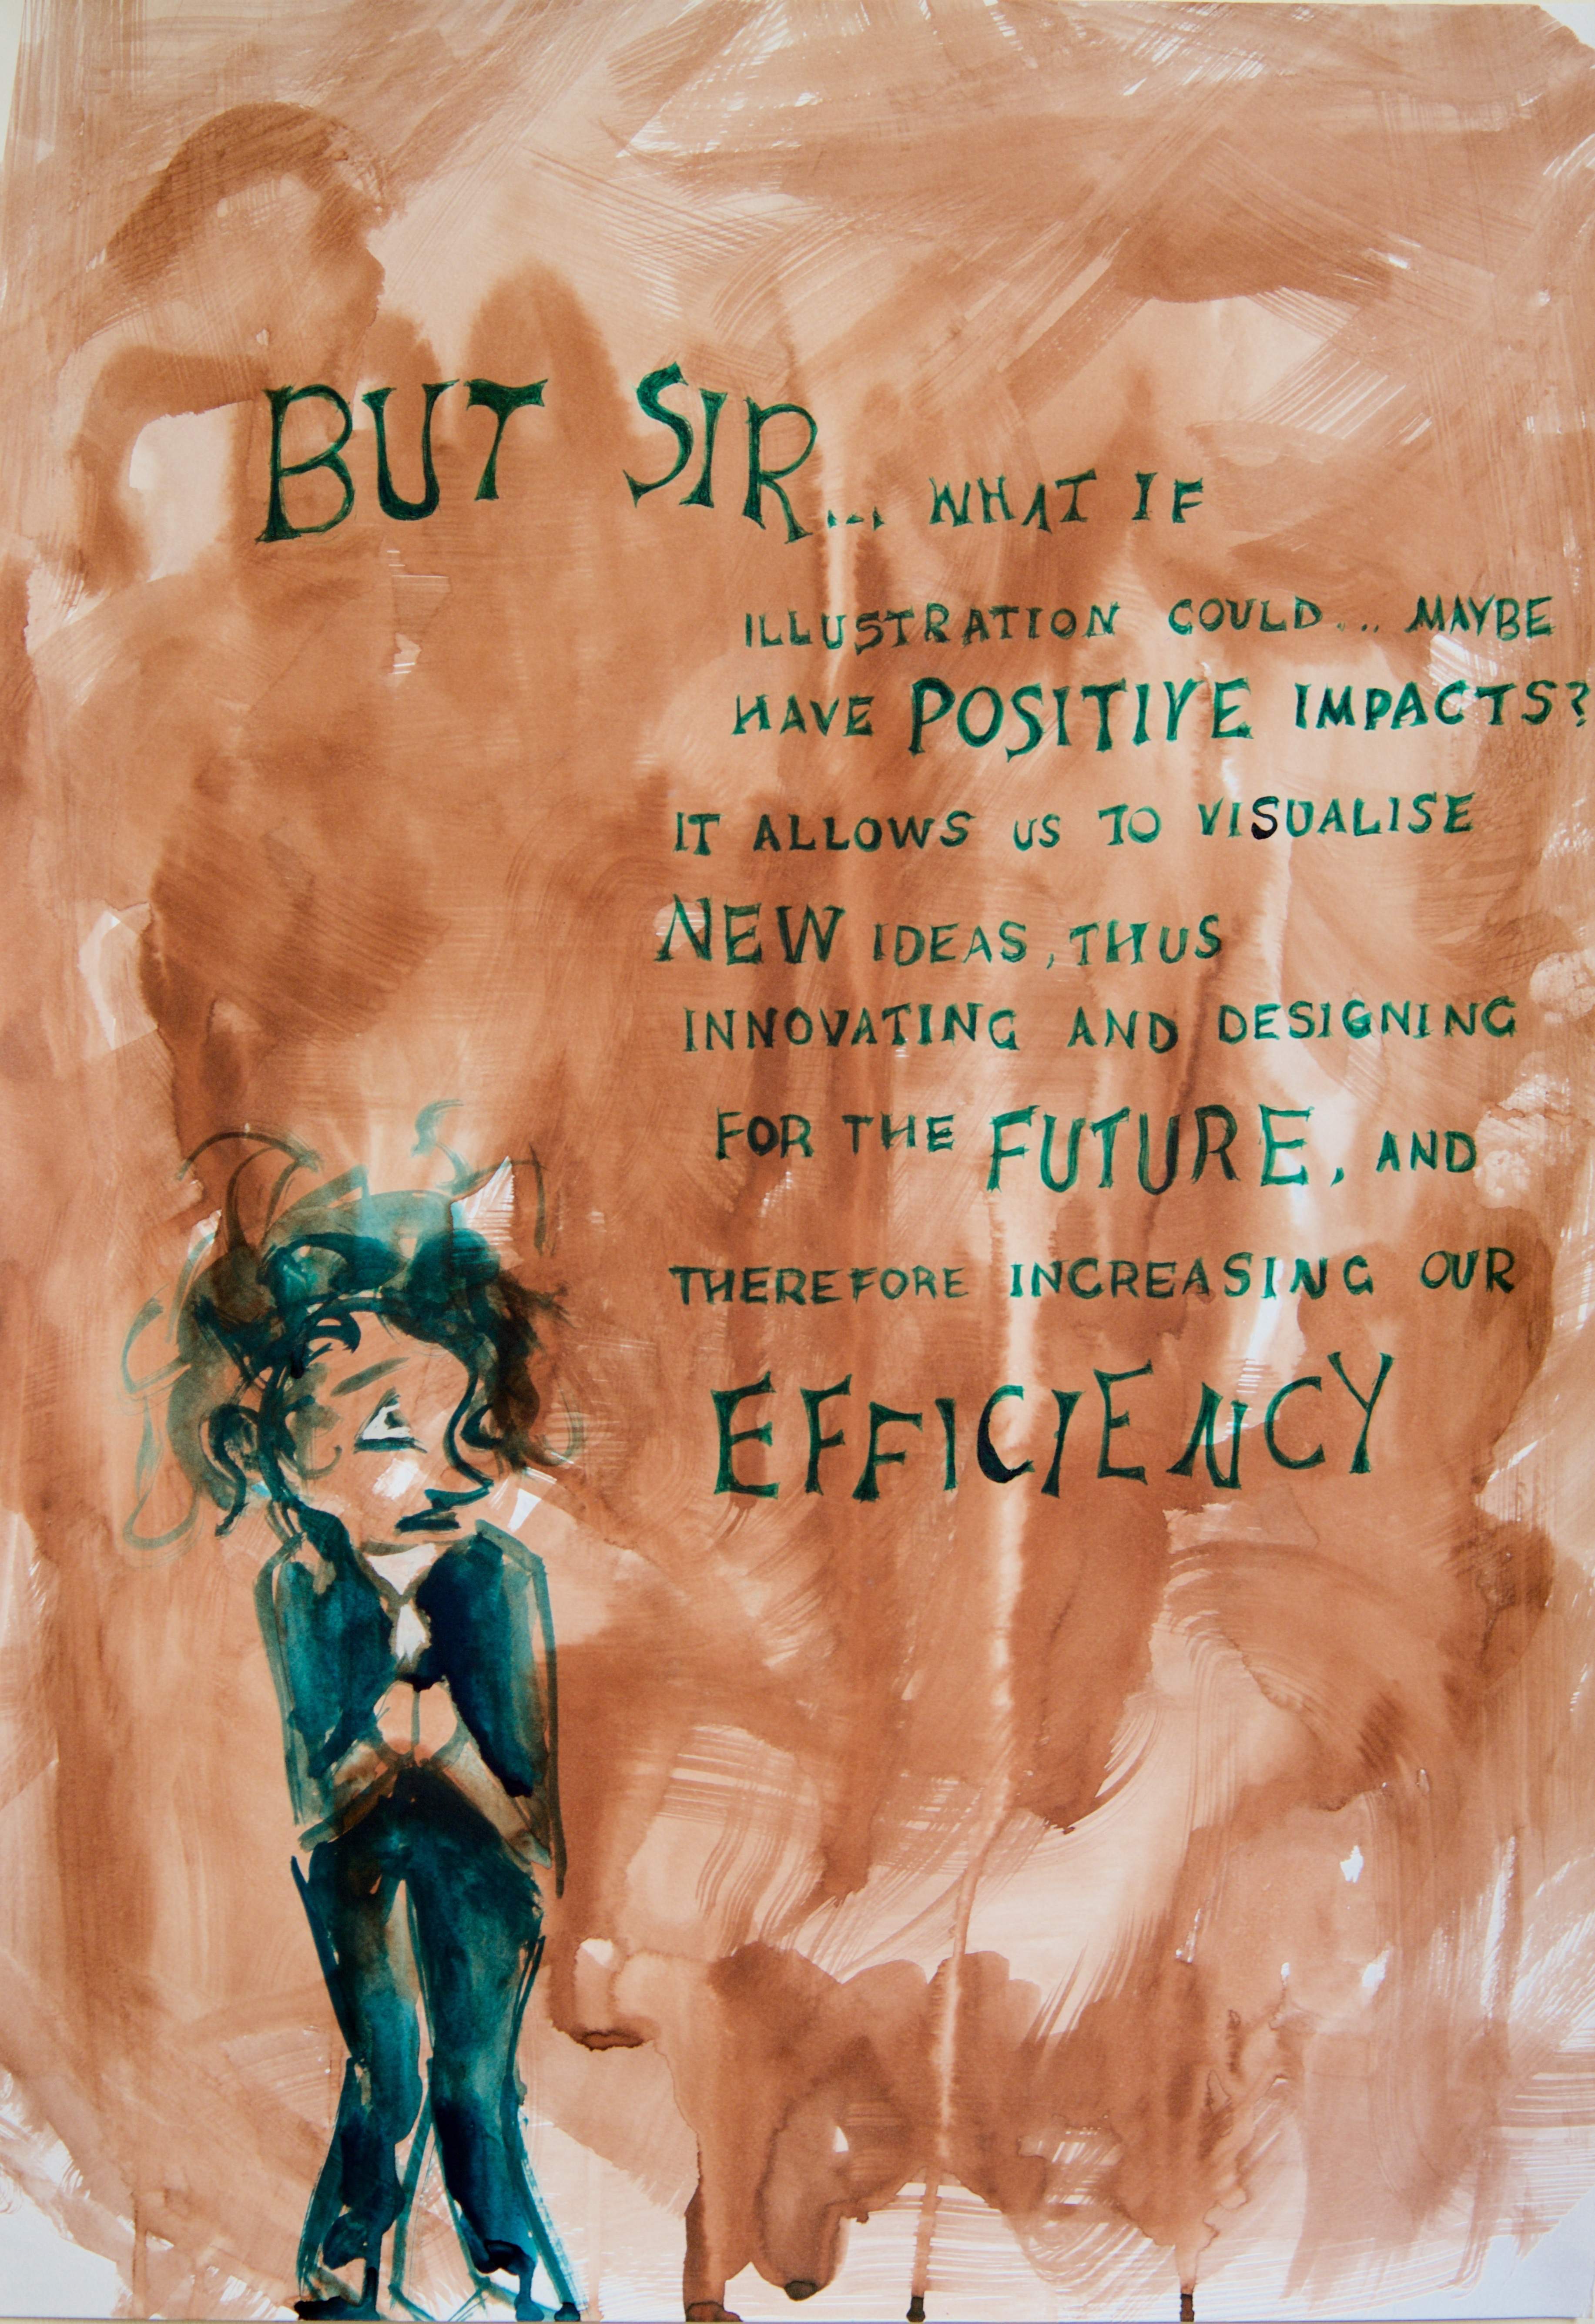 BUT SIR... WHAT IF
ILLUSTRATION COULD... MAYBE
HAVE POSITIVE IMPACTS?
IT ALLOWS US TO VISUALISE
NEW IDEAS, THUS
INNOVATING AND DESIGNING
FOR THE FUTURE, AND
THEREFORE INCREASING OUR
EFFICIENCY